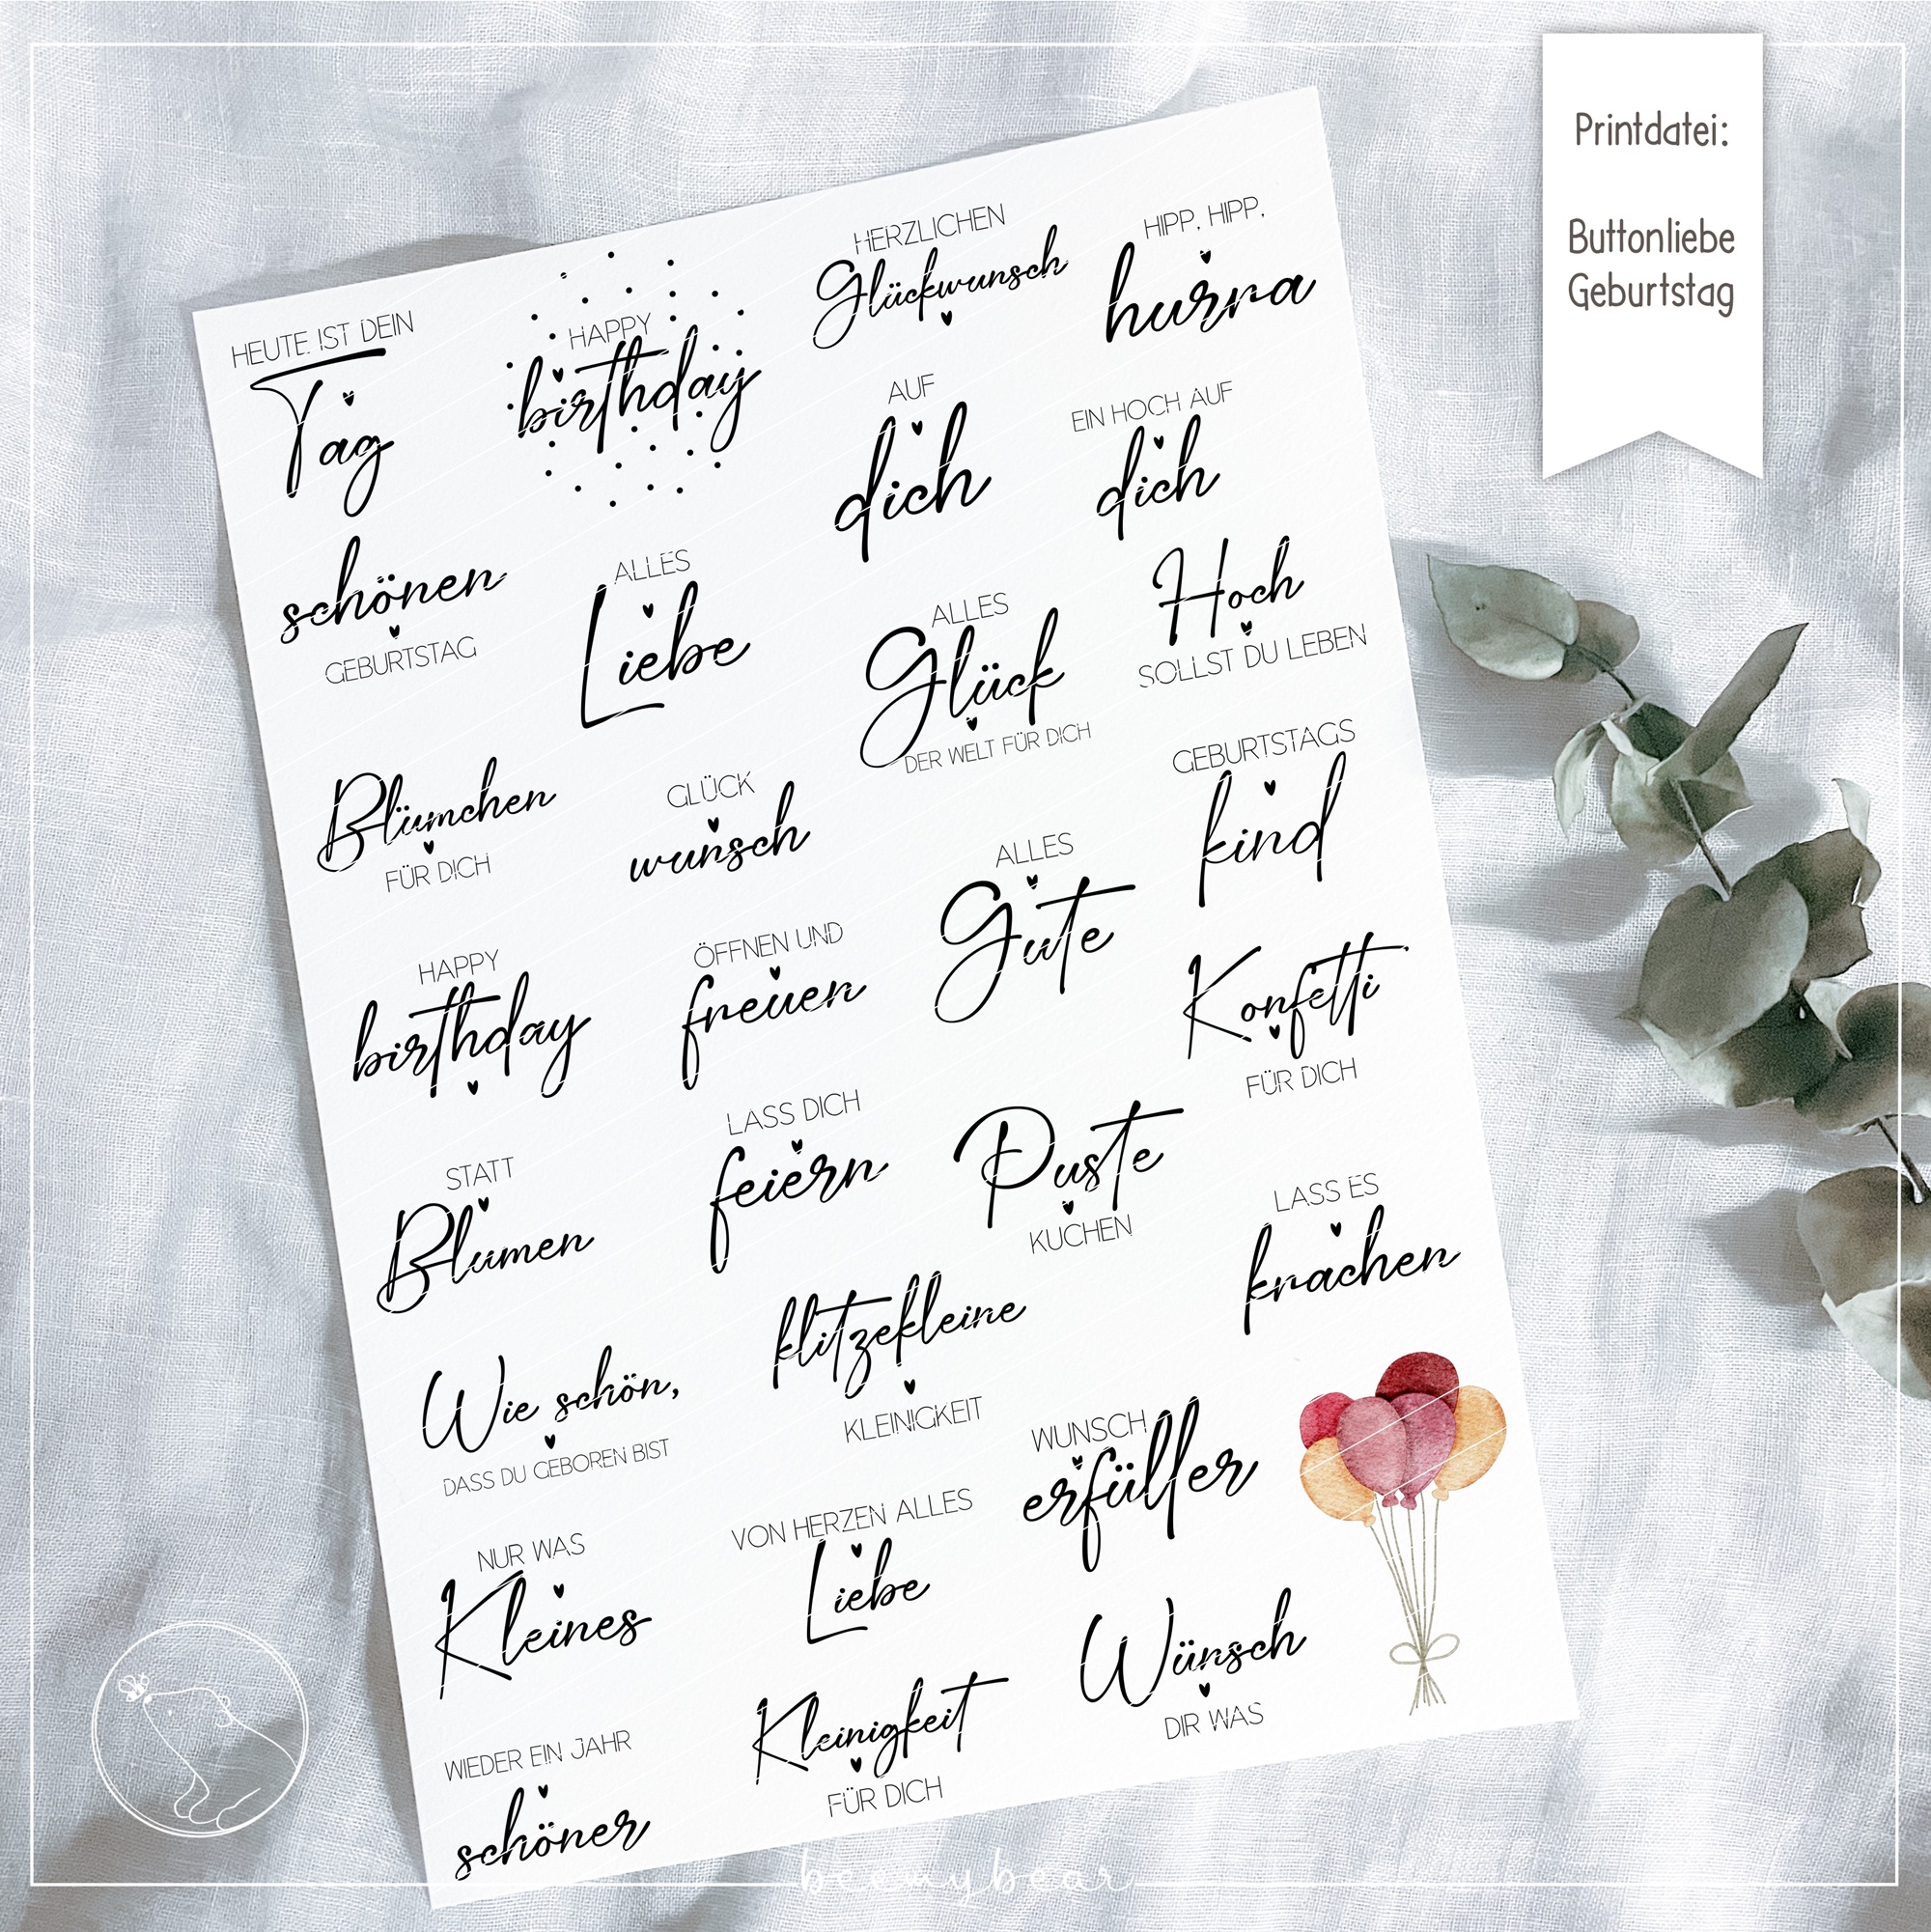 Printdatei:
Buttonliebe
Geburtstag
HEUTE IST DEIN
Tag
HAPPY
birthday
HERZLICHEN
Glückwunsch
HIPP, HIPP,
hurra
schönen
GEBURTSTAG
ALLES
Liebe
AUF
dich
EIN HOCH AUF
dich
Blümchen
FÜR DICH
GLÜCK
wunsch
ALLES
Glück
DER WELT FÜR DICH
Hoch
SOLLST DU LEBEN
HAPPY
birthday
ÖFFNEN UND
freuen
ALLES
Gute
GEBURTSTAGS
kind
STATT
Blumen
LASS DICH
feiern
Puste
KUCHEN
Konfetti
FÜR DICH
Wie schön,
DASS DU GEBOREN BIST
klitzekleine
KLEINIGKEIT
WUNSCH
erfüller
LASS ES
krachen
NUR WAS
Kleines
VON HERZEN ALLES
Liebe
Wünsch
DIR WAS
WIEDER EIN JAHR
schöner
Kleinigkeit
FÜR DICH
beemybear